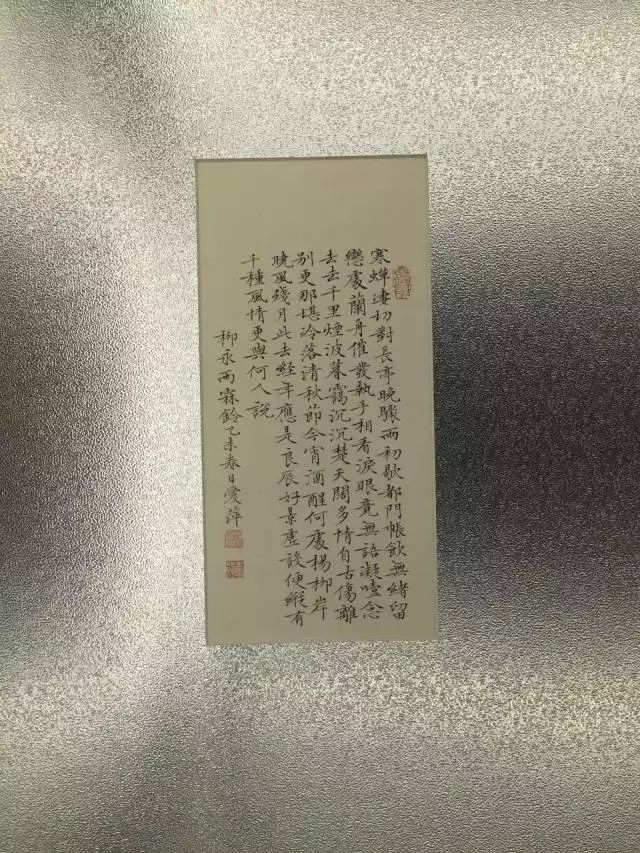 寒蟬淒切對長亭晚驟雨初歇都門帳飲無緒留
戀處蘭舟催發執手相看淚眼竟無語凝噎念
去去千里煙波暮靄沉沉楚天闊多情自古傷離
別更那堪冷落清秋節今宵酒醒何處楊柳岸
曉風殘月此去經年應是良辰好景虛設便縱有
千種風情更與何人說
柳永雨霖鈴乙未春日愛萍